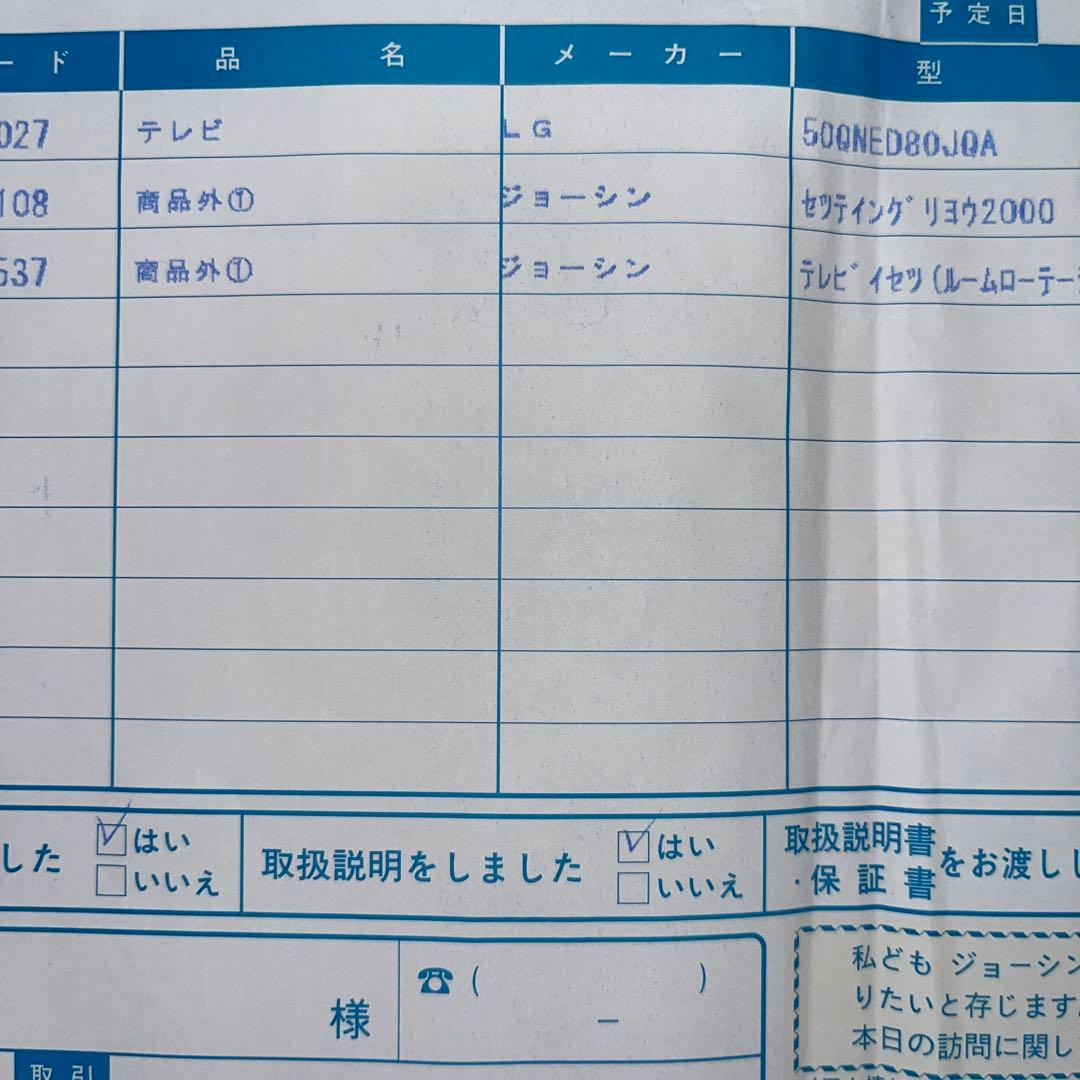 予定日
ード 品名 メーカー 型
027 テレビ LG 50QNED80JQA
108 商品外① ジョーシン ｾツテイング リヨウ2000
537 商品外① ジョーシン テレビ イセツ(ルームローテー
した はい
いいえ
取扱説明をしました はい
いいえ
取扱説明書
・保証書
をお渡しし
様
☎( )
－
私ども ジョーシン
りたいと存じます
本日の訪問に関し
取引